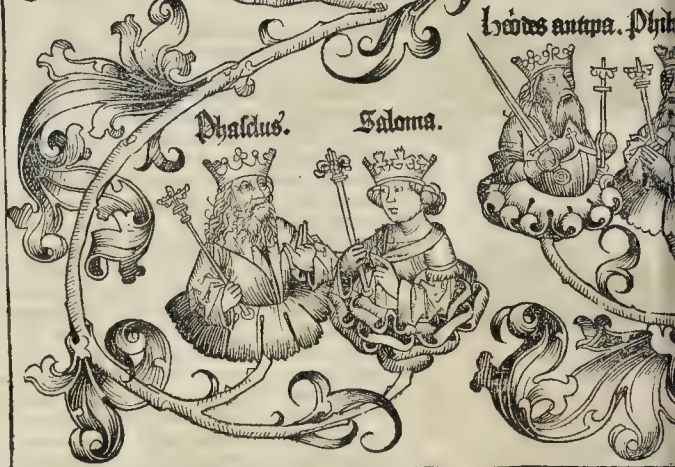 Hẽodes antipa.
Phaselus. Saloma.